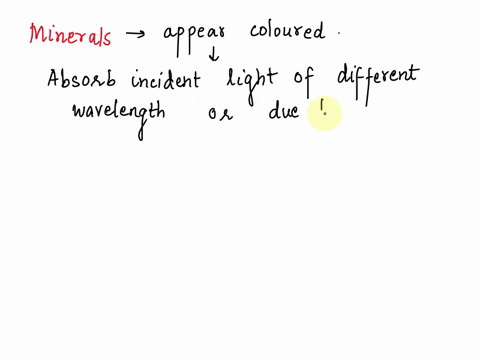 Minerals → appear coloured.
↓
Absorb incident light of different
wavelength or due